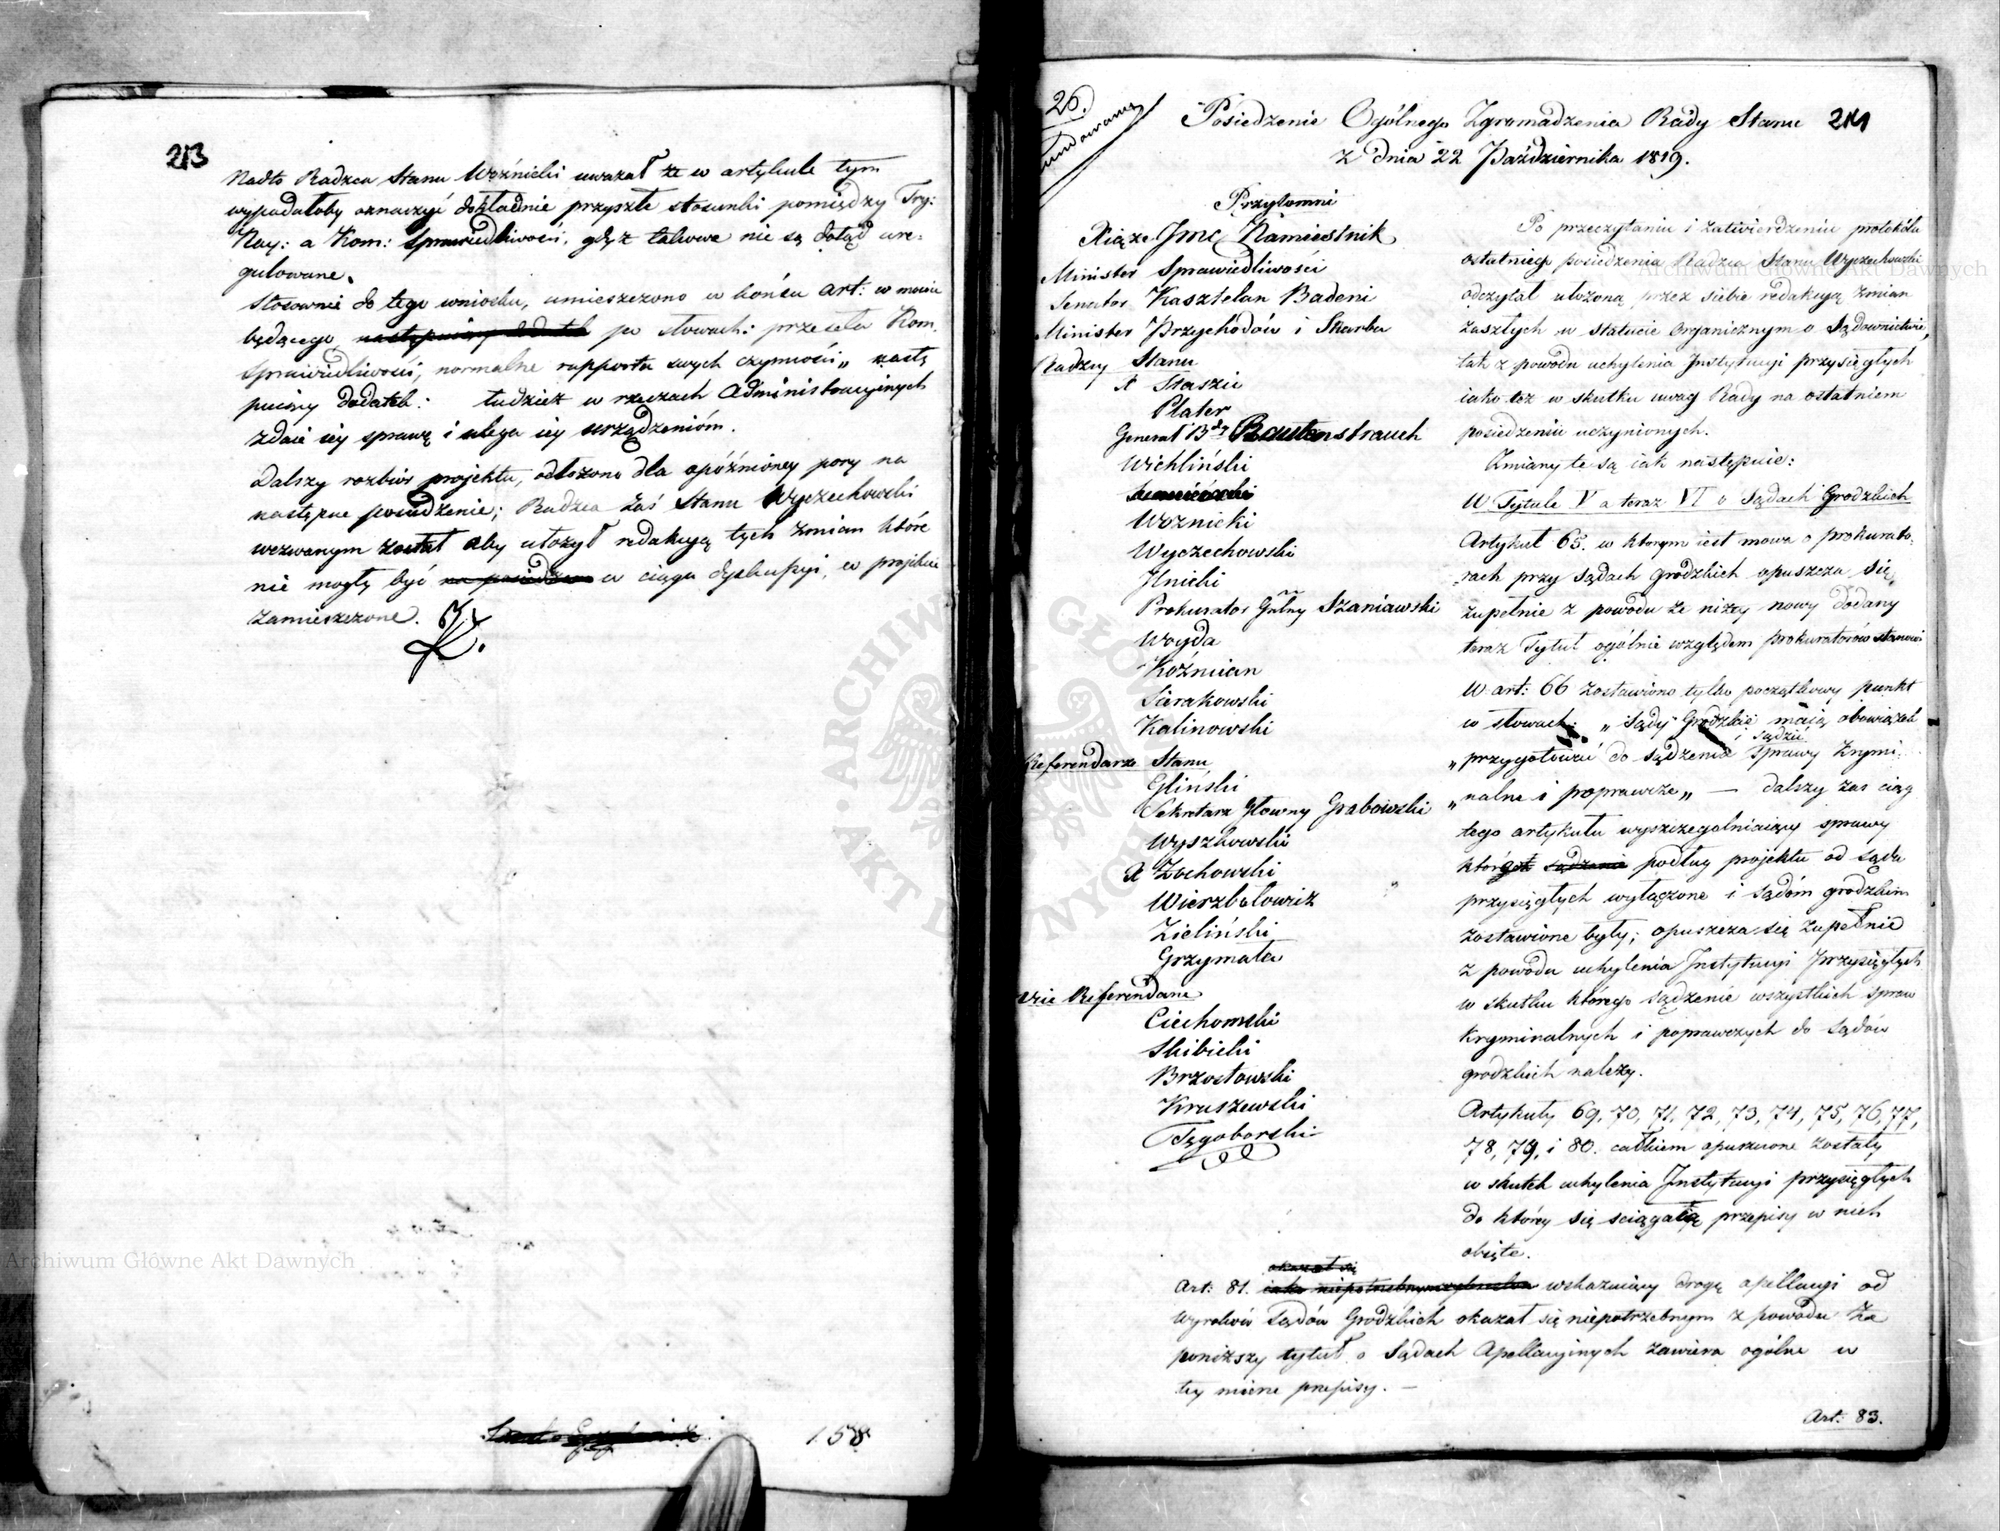 213
Nadto Radzca Stanu Woźnicki uważał że w artykule tym
wypadałoby oznaczyć dokładnie przyszłe stosunki pomiędzy Try:
Nay: a Kom: Sprawiedliwości, gdyż takowe nie są dotąd ure-
gulowane.
Stosownie do tego wniosku, umieszczono w końcu art: w mowie
będącego, po słowach: przeseła Kom.
Sprawiedliwości, normalne rapporta swych czynności„ nastę
puiący dodatek: tudzież w rzeczach administracyjnych
zdaie iey sprawę i ulega iey urządzeniom.
Dalszy rozbiór projektu, odłożono dla opóźnioney pory na
następne posiedzenie; Radzca zaś Stanu Wyczechowski
wezwanym został aby ułożył redakcyą tych zmian które
nie mogły być na posiedzeniu w ciągu dyskussyi, w projekcie
zamieszczone.
158
26.
214
Posiedzenie Ogólnego Zgromadzenia Rady Stanu
z dnia 22 Października 1819.
Przytomni
Xiąże Jmc Namiestnik
Minister Sprawiedliwości
Senator Kasztelan Badeni
Minister Przychodów i Skarbu
Radzcy Stanu
X Staszic
Plater
Generał Bdy Rautenstrauch
Wichliński
Woznicki
Wyczechowski
Jlnicki
Prokurator Gnlny Szaniawski
Woyda
Koźmian
Sierakowski
Kalinowski
Referendarze Stanu
Gliński
Sekretarz Głowny Grabowski
Wyszkowski
X Zochowski
Wierzbołowicz
Zieliński
Grzymała
Vice Referendarze
Ciechomski
Skibicki
Brzostowski
Kruszewski
Tęgoborski
Po przeczytaniu i zatwierdzeniu protokółu
ostatniego posiedzenia Radzca Stanu Wyczechowski
odczytał ułożoną przez siebie redakcyą zmian
zaszłych w statucie organicznym o Sądownictwie,
tak z powodu uchylenia Jnstytucyi przysięgłych
iako też w skutku uwag Rady na ostatniem
posiedzeniu uczynionych.
Zmiany te są iak następuie:
W Tytule V a teraz VI o Sądach Grodzkich
Artykuł 65. w ktorym iest mowa o prokurato-
rach przy sądach grodzkich opuszcza się
zupełnie z powodu że niżey nowy dodany
teraz Tytuł ogólnie względem prokuratorów stanowi
W art: 66 zostawiono tylko początkowy punkt
w słowach: „Sądy Grodzkie maią obowiązek
i sądzić
„przygotować do sądzenia sprawy krymi-
„nalne i poprawcze„ — dalszy zaś ciąg
tego artykułu wyszczegolniaiący sprawy
które podług projektu od sądu
przysięgłych wyłączone i sądóm grodzkim
zostawione były; opuszcza się zupełnie
z powodu uchylenia Jnstytucyi Przysięgłych
w skutku którego sądzenie wszystkich spraw
kryminalnych i poprawczych do sądów
grodzkich należy.
Artykuły 69, 70, 71, 72, 73, 74, 75, 76, 77,
78, 79, i 80. całkiem opuszczone zostały
w skutek uchylenia Jnstytucyi przysięgłych
do którey się sciągałą przepisy w nich
obięte.
okazał się
Art: 81. wskazuiący drogę apellacyi od
wyroków Sądów Grodzkich okazał się niepotrzebnym z powodu że
poniższy tytuł o Sądach Apellacyjnych zawiera ogólne w
tey mierze przepisy. —
Art: 83.
Archiwum Główne Akt Dawnych
Archiwum Główne Akt Dawnych
ARCHIWUM GŁÓWNE AKT DAWNYCH